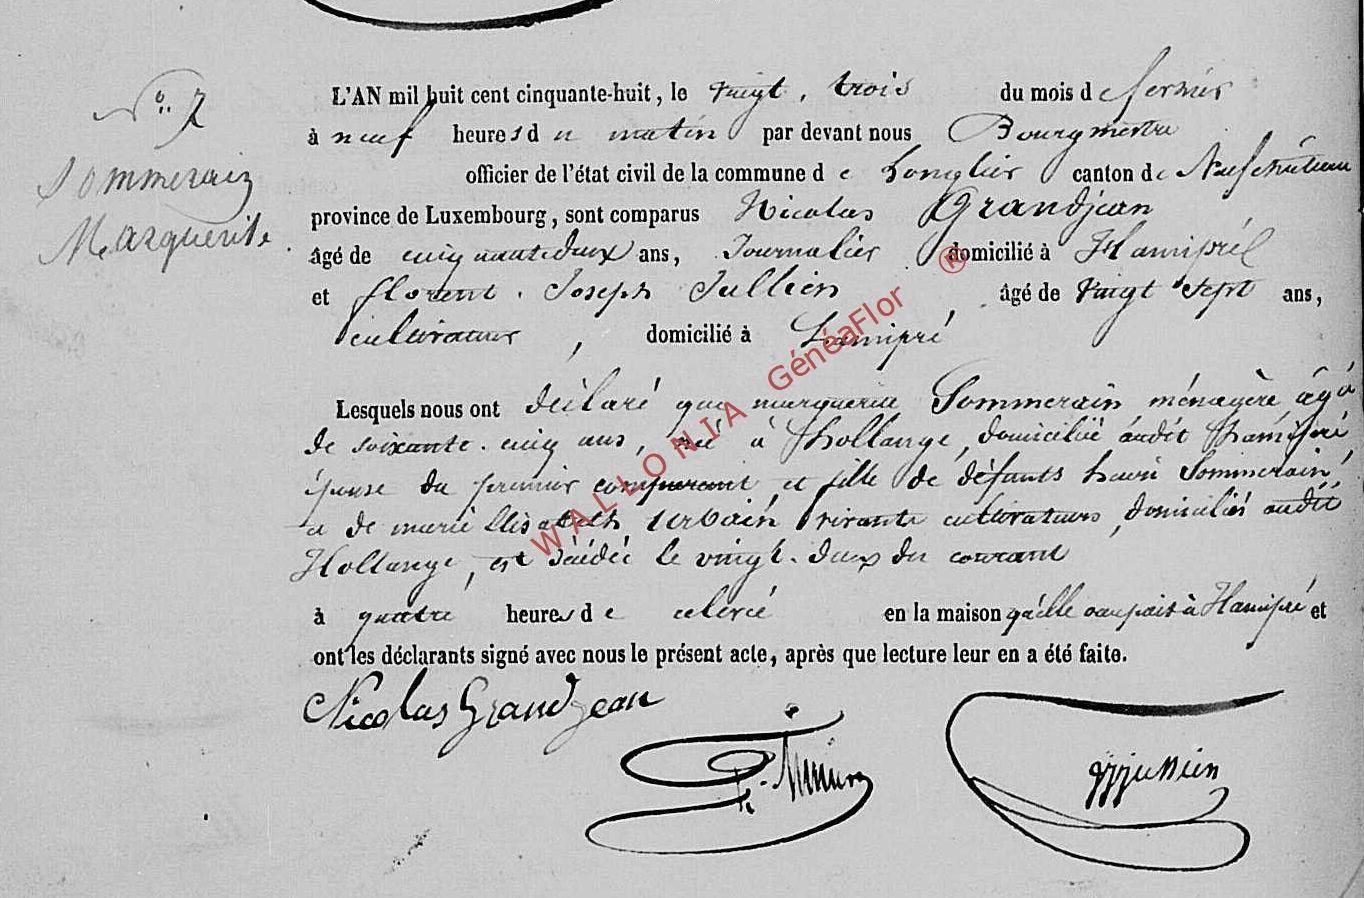 N° 7
Sommerain
Marguerite.
L'AN mil huit cent cinquante-huit, le vingt. trois du mois de fevrier
à neuf heures du matin par devant nous Bourgmestre
officier de l'état civil de la commune de Longlier canton de Neufchâteau
province de Luxembourg, sont comparus Nicolas Grandjean
âgé de cinquante deux ans, Journalier domicilié à Hamipré
et florent. Joseph Jullien, âgé de vingt sept ans,
cultivateur, domicilié à Hamipré
Lesquels nous ont déclaré que marguerite Sommerain ménagère âgé
de soixante. cinq ans, né à hollange, domicilié audit hamipré
épouse du premier comparant et fille de défunts henri Sommerain,
et de marie Elisabeth Urbain vivante cultivateurs, domiciliés audit
Hollange, est décédée le vingt. deux du courant
à quatre heures de relevé en la maison qu'elle occupait à Hamipré et
ont les déclarants signé avec nous le présent acte, après que lecture leur en a été faite.
Nicolas Grandjean
WALLONIA GénéaFlor ®